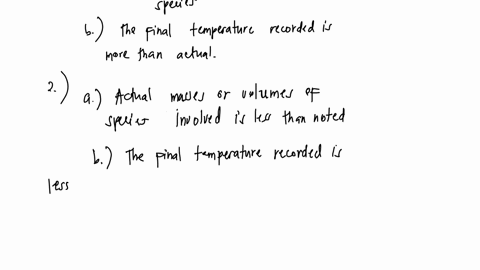 species
b.) The final temperature recorded is
more than actual.
2.)
a.) Actual masses or volumes of
species involved is less than noted
b.) The final temperature recorded is
less